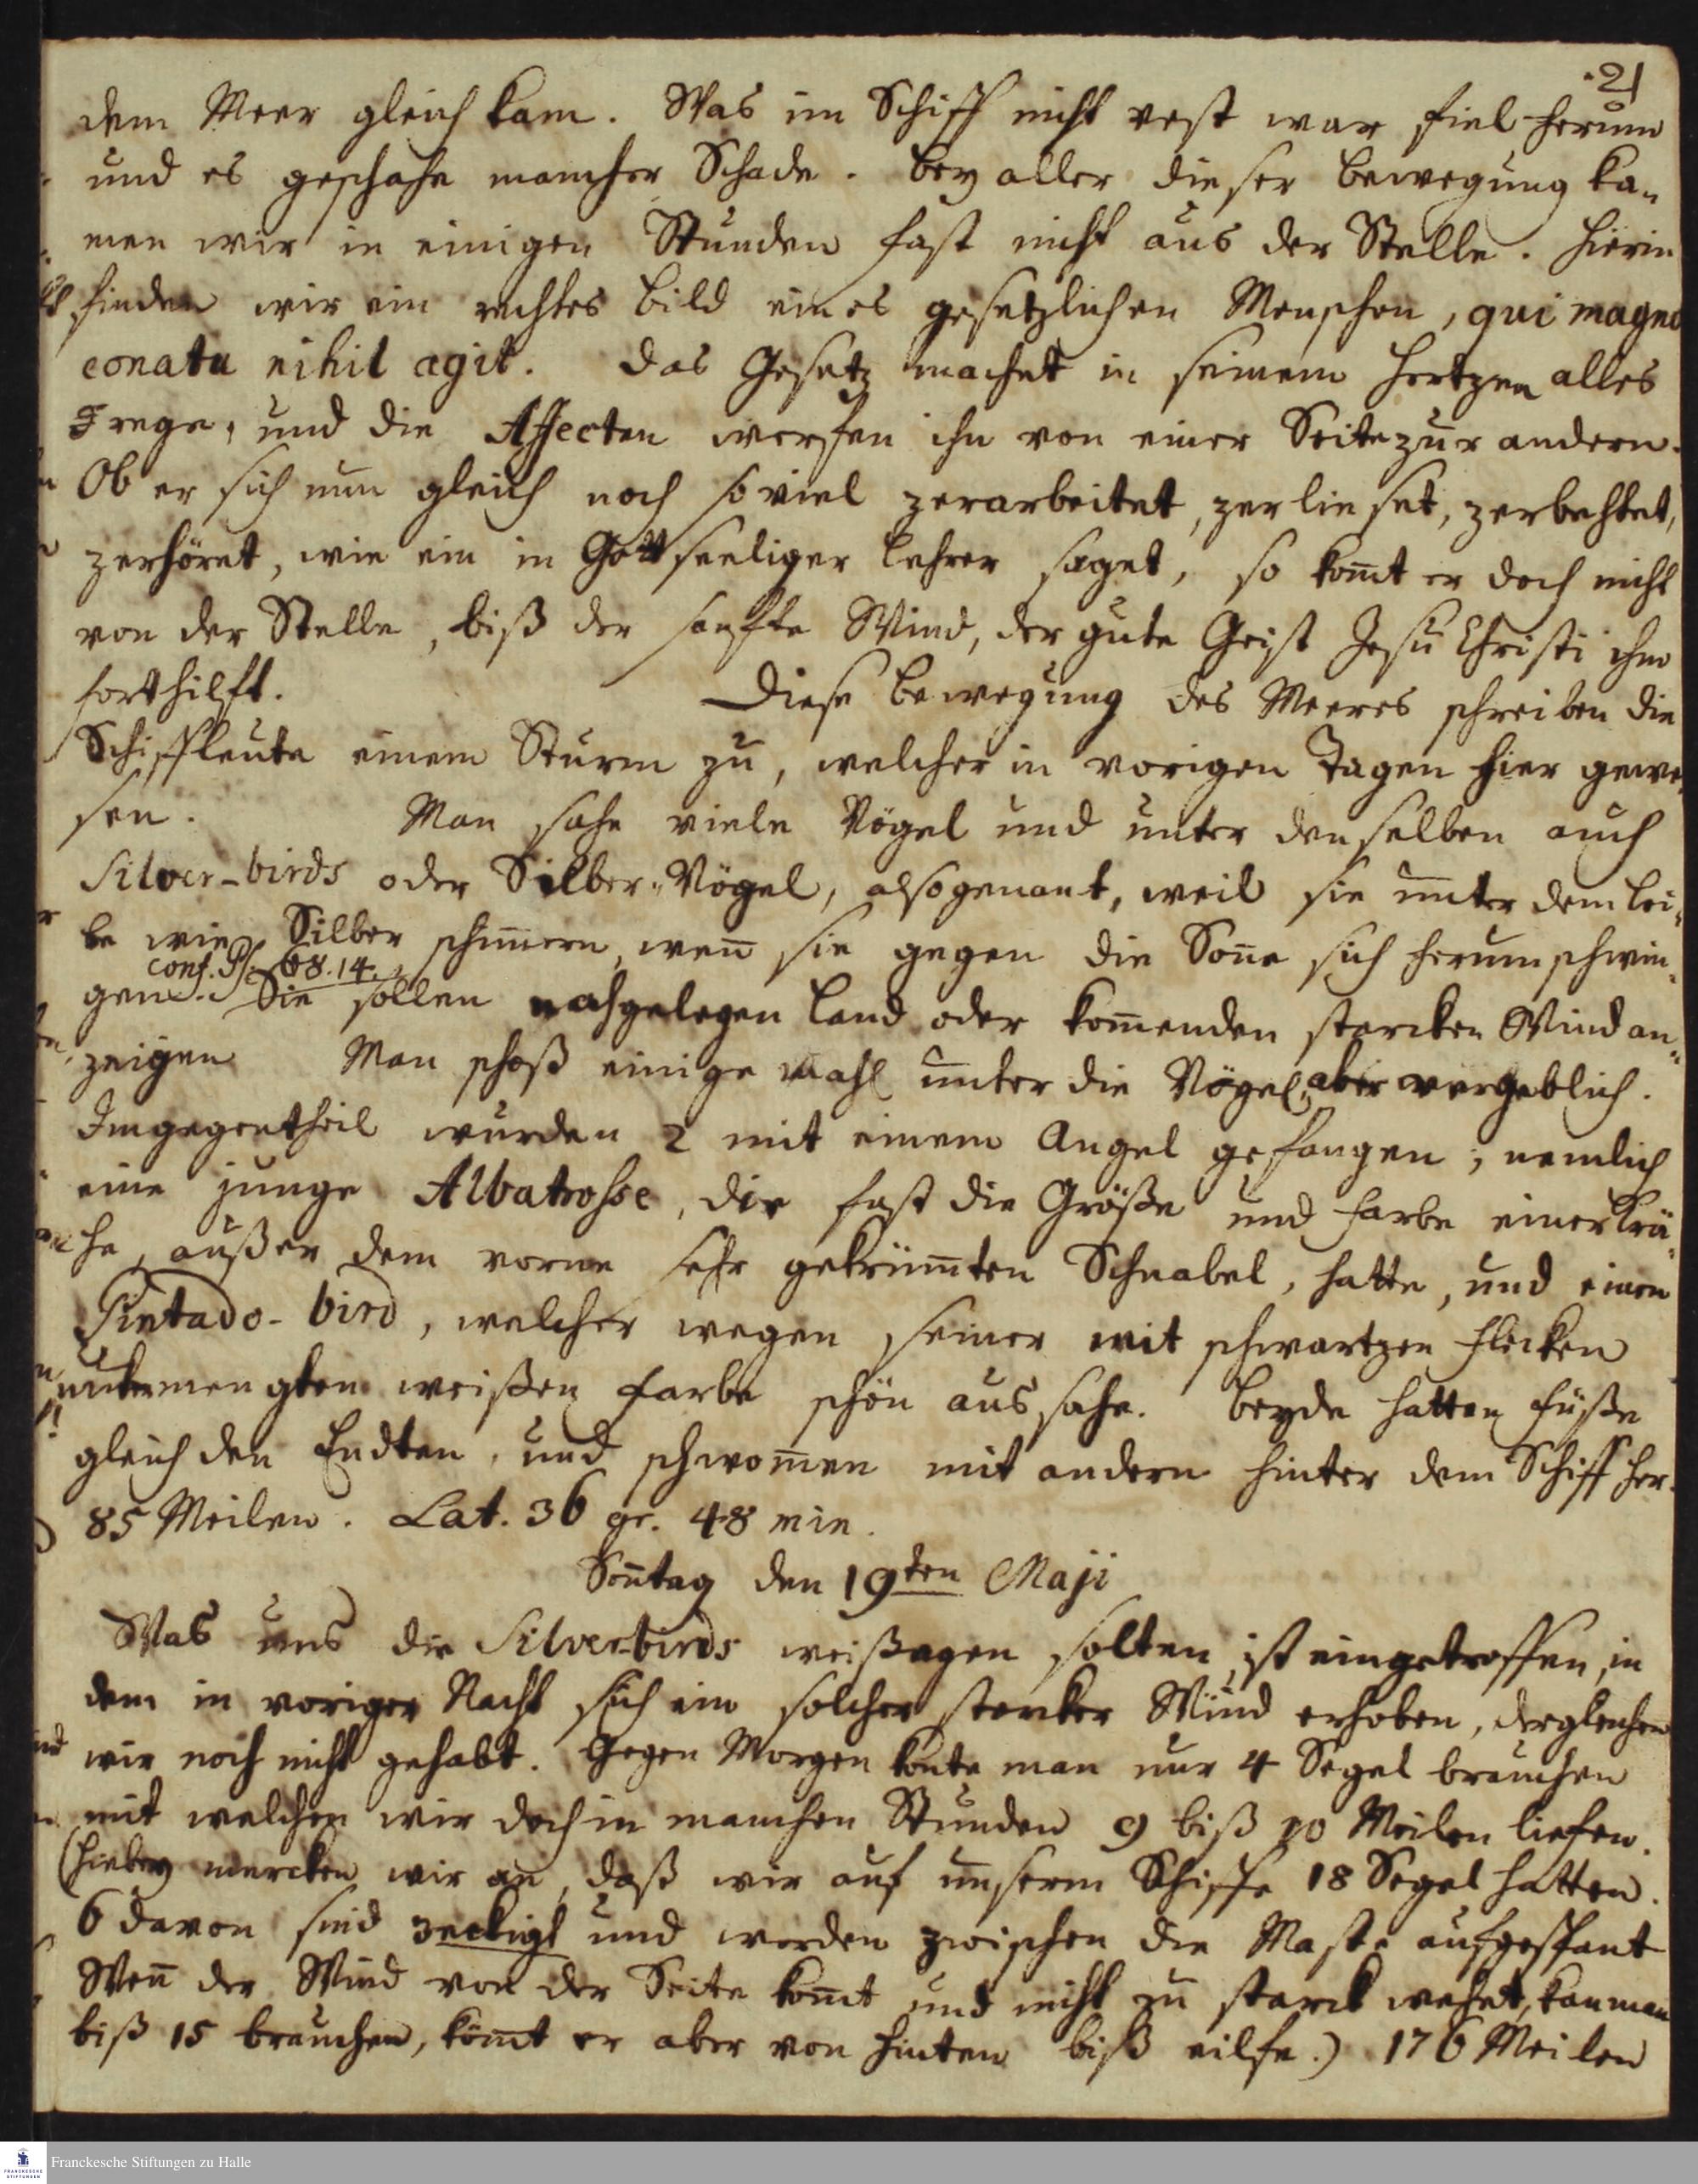 21
dem Meer gleich kam. Was im Schiff nicht vest war fiel herum
und es geschahe mancher Schade. Bey aller dieser Bewegung ka-
men wir in einigen Stunden fast nicht aus der Stelle. Hierin
finden wir ein rechtes Bild eines gesetzlichen Menschen, qui magno
conatu nihil agit. Das Gesetz machet in seinem Hertzen alles
rege, und die Affecten werfen ihn von einer Seite zur andern.
Ob er sich nun gleich noch so viel zerarbeitet, zerlieset, zerbethet,
zerhöret, wie ein in Gott seeliger Lehrer saget, so kom̅t er doch nicht
von der Stelle, biß der sanfte Wind, der gute Geist Jesu Christi ihm
forthilft. Diese Bewegung des Meeres schreiben die
Schiffleute einem Sturm zu, welcher in vorigen Tagen hier gewe-
sen. Man sahe viele Vögel und unter denselben auch
Silver-birds oder Silber-Vögel, also genant, weil sie unter dem Lei-
be wie Silber schim̅ern, wen̅ sie gegen die Son̅e sich herum schwin-
conf. Ps. 68.14.
gen. Sie sollen nahgelegen Land oder kom̅enden starcken Wind an-
zeigen Man schoß einige mahl unter die Vögel, aber vergeblich.
Im gegentheil wurden 2 mit einem Angel gefangen, nemlich
eine junge Albatrosse, die fast die Größe und Farbe einer Krä-
he, außer dem vorne sehr gekrüm̅ten Schnabel, hatte, und einen
Pintado-bird, welcher wegen seiner mit schwartzen Flecken
untermengten weißen Farbe schön aus sahe. Beyde hatten Füße
gleich den Endten, und schwom̅en mit andern hinter dem Schiff her.
85 Meilen. Lat. 36 gr. 48 min.
Son̅tag den 19ten Maji
Was uns die Silver-birds weißagen solten, ist eingetroffen, in
dem in voriger Nacht sich ein solcher starcker Wind erhoben, dergleichen
wir noch nicht gehabt. Gegen Morgen konte man nur 4 Segel brauchen
mit welchen wir doch in manchen Stunden 9 biß 10 Meilen liefen.
(Hiebey mercken wir an, daß wir auf unserm Schiffe 18 Segel hatten.
6 davon sind 3eckigt und werden zwischen die Maste aufgespant
Wen̅ der Wind von der Seite kom̅t und nicht zu starck wehet, kan man
biß 15 brauchen, köm̅t er aber von hinten biß eilfe.) 176 Meilen
Franckesche Stiftungen zu Halle